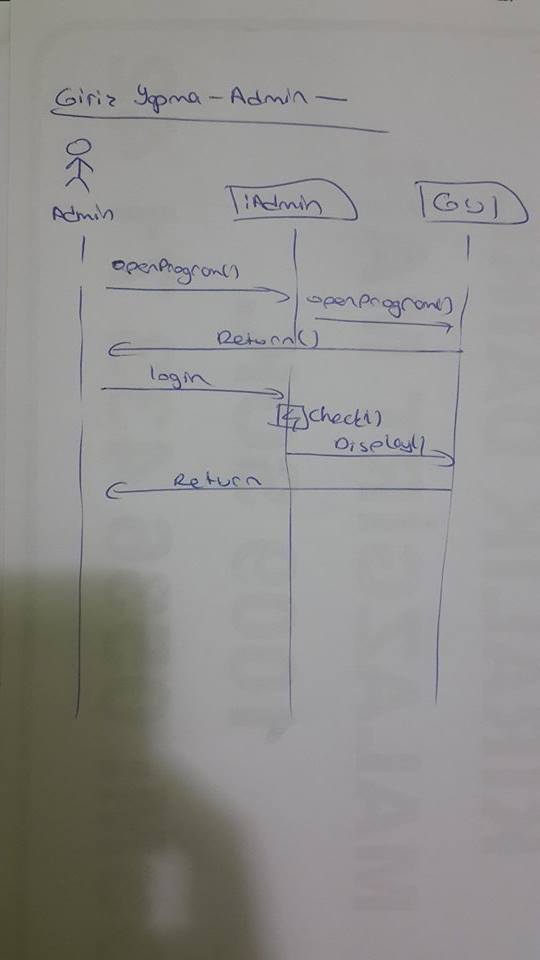 Giriz Yapma - Admin -
Admin
:Admin
GUI
openProgram()
openProgram()
Return()
login
Check()
Display()
Return